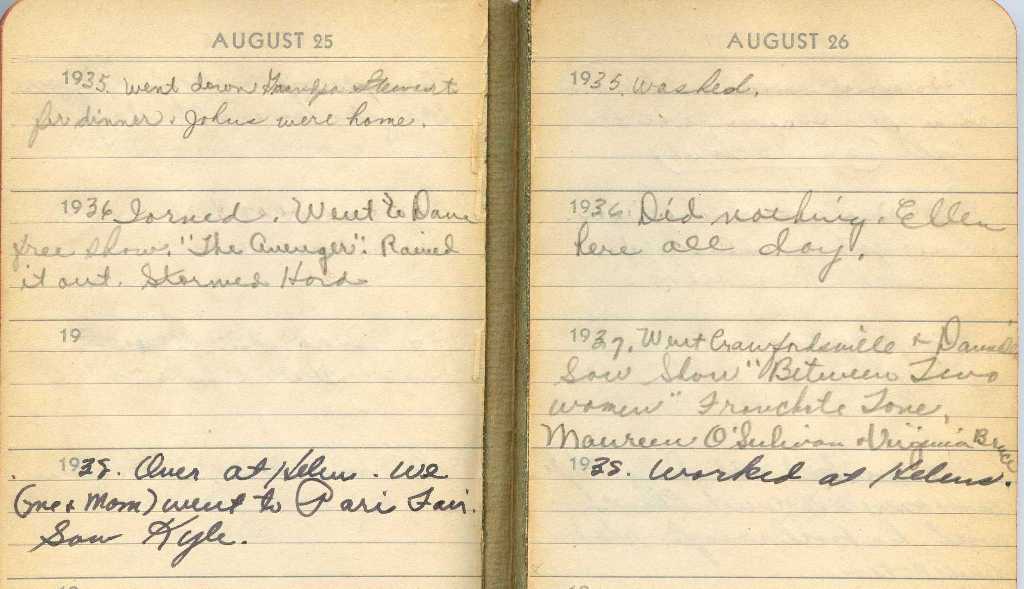 AUGUST 25
1935. Went down Grandpa Stewart
for dinner. Johns were home.
1936. Ironed. Went to Dana
free show. "The Avenger". Rained
it out. Stormed Hard
19
1938. Over at Helens. We
(me & Mom) went to Paris Fair.
Saw Kyle.
AUGUST 26
1935. Washed.
1936. Did nothing. Ellen
here all day.
1937. Went Crawfordsville &
Saw Show "Between Two
women" Franchote Tone,
Maureen O'Sulivan & Virginia Bruce
1938. Worked at Helens.